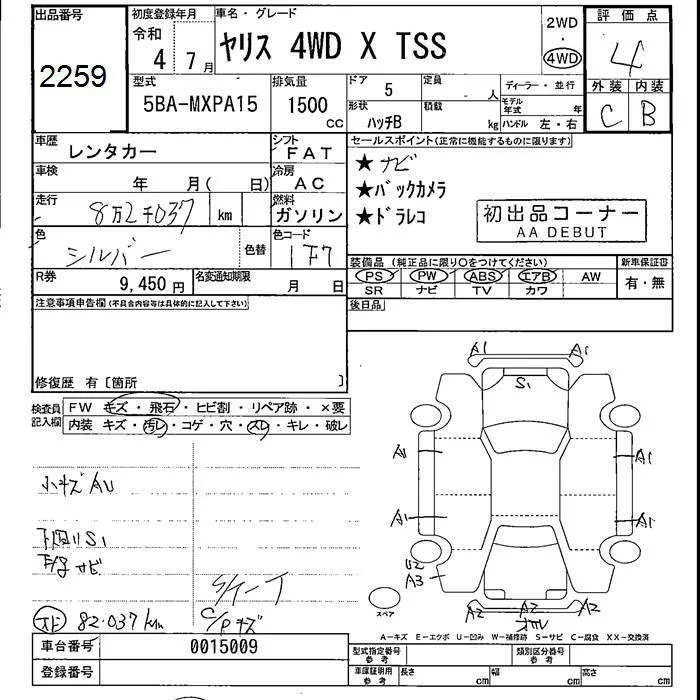 出品番号
2259
初度登録年月
令和
4 7月
車名・グレード
ヤリス 4WD X TSS
2WD
・
4WD
評価点
4
外装 内装
C B
型式
5BA-MXPA15
排気量
1500
CC
ドア 5
定員 - 人
形状 ハッチB
積載 kg
ディーラー・並行
モデル年式 年
ハンドル 左・右
車歴
レンタカー
シフト
FAT
車検
年 月( 日)
冷房
AC
走行
8万2千037 km
燃料
ガソリン
色
シルバー
色替
色コード
1F7
R券
9,450円
名変通知期限
月 日
セールスポイント(正常に機能するものに限ります)
★ナビ
★バックカメラ
★ドラレコ
初出品コーナー
AA DEBUT
装備品(純正品に限り○をつけてください)
新車保証書
PS PW ABS エアB AW
SR ナビ TV カワ
有・無
後日品
注意事項申告欄(不具合内容等は具体的に記入して下さい)
修復歴 有[箇所 ]
検査員
記入欄
FW キズ・飛石・ヒビ割・リペア跡・×要
内装 キズ・汚レ・コゲ・穴・スレ・キレ・破レ
小キズ AU
下回り S1
サビ
82.037km
C/Pキズ
A1 A1
S1
A1
A1
A1
A1
U2
A3
A2 A2 A2
スペア
A-キズ E-エクボ U-凹み W-補修跡 S-サビ C-腐食 XX-交換済
車台番号
0015009
登録番号
型式指定番号
参考
類別区分番号
参考
車庫証明用
参考
長さ cm
幅 cm
高さ cm